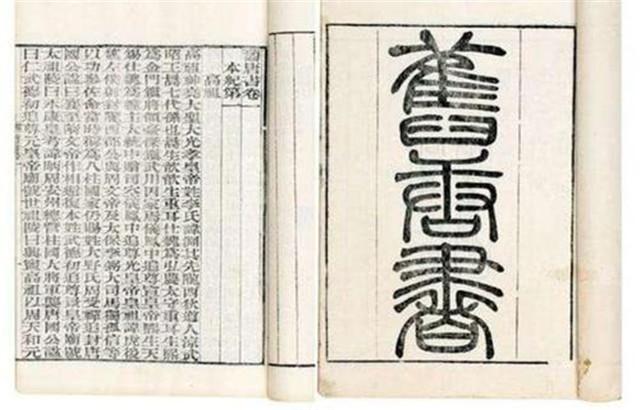 舊唐書
舊唐書卷一
本紀第一
高祖
高祖神堯大聖大光孝皇帝姓李氏諱淵其先隴西狄道人涼武
昭王暠七代孫也暠生歆歆生重耳仕魏為弘農太守重耳生熙
為金門鎮將領豪傑鎮武川因家焉儀鳳中追尊宣皇帝熙生天
錫仕魏為幢主大統中贈司空儀鳳中追尊光皇帝皇祖諱虎後
魏左僕射封隴西郡公與周文帝及太保李弼大司馬獨孤信等
以功參佐命當時稱為八柱國家仍賜姓大野氏周受禪追封唐
國公諡曰襄至隋文帝作相還復本姓武德初追尊景皇帝廟號
太祖陵曰永康皇考諱昞周安州總管柱國大將軍襲唐國公諡
曰仁武德初追尊元皇帝廟號世祖陵曰興寧高祖以周天和元